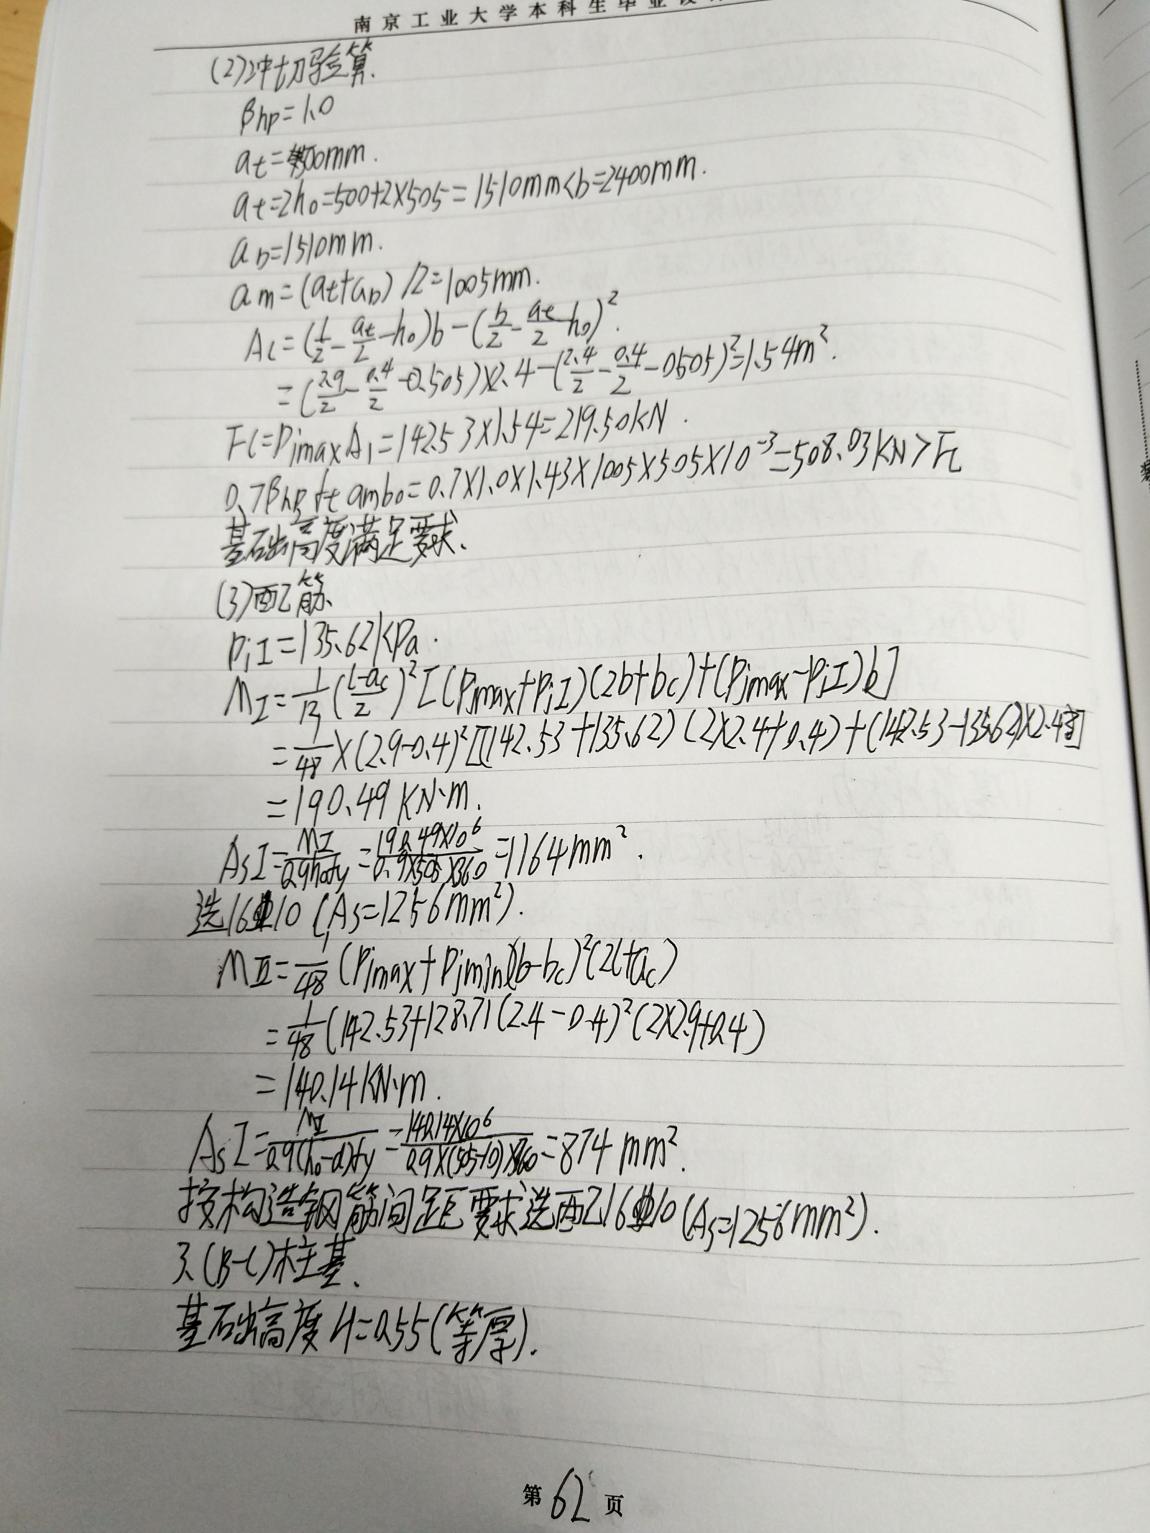 南京工业大学本科生毕业设
(2)冲切验算.
βhp=1.0
at=500mm.
at=2h₀=500+2×505=1510mm<b=2400mm.
ab=1510mm.
am=(at+ab)/2=1005mm.
Al=(l/2-at/2-h₀)b-(b/2-at/2-h₀)².
=(2.9/2-0.4/2-0.505)×2.4-(2.4/2-0.4/2-0.505)²=1.54m².
Fl=PjmaxA₁=142.53×1.54=219.50kN.
0.7βhp ft amb₀=0.7×1.0×1.43×1005×505×10⁻³=508.03KN>FL
基础高度满足要求.
(3)配筋.
PjI=135.62kPa.
MI=1/12((l-ac)/2)²[(Pjmax+PjI)(2b+bc)+(Pjmax-PjI)b]
=1/48×(2.9-0.4)²[(142.53+135.62)(2×2.4+0.4)+(142.53-135.62)×2.4]
=190.49KN·m.
AsI=MI/0.9h₀fy=190.49×10⁶/0.9×505×360=1164mm².
选16Φ10(As=1256mm²).
MⅡ=1/48(Pjmax+Pjmin)(b-bc)²(2l+ac)
=1/48(142.53+128.71(2.4-0.4)²(2×2.9+0.4)
=140.14KN·m.
AsI=MI/0.9(h₀-d)fy=140.14×10⁶/0.9×(505-10)×360=874mm².
按构造钢筋间距要求选配16Φ10(As=1256mm²).
3.(B-C)柱基.
基础高度H=0.55(等厚).
第62页